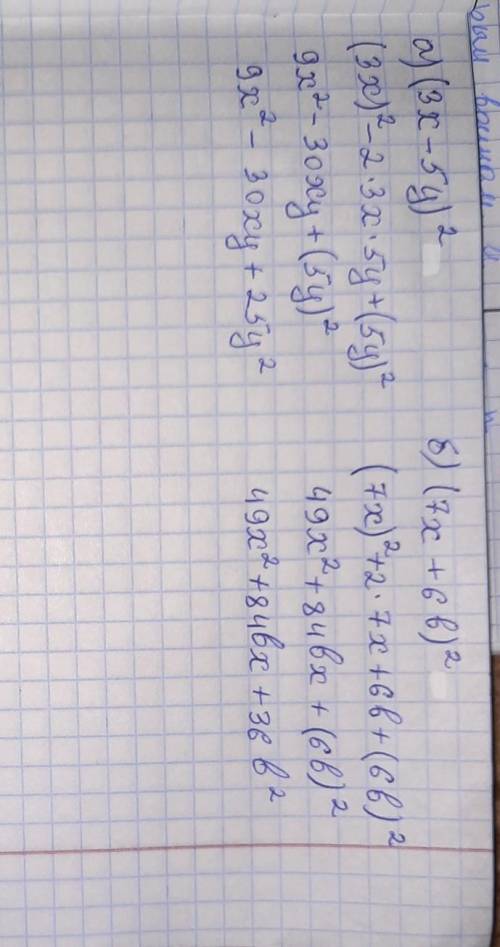 а) (3x - 5y)²
(3x)² - 2·3x·5y + (5y)²
9x² - 30xy + (5y)²
9x² - 30xy + 25y²
б) (7x + 6в)²
(7x)² + 2·7x + 6в + (6в)²
49x² + 84вx + (6в)²
49x² + 84вx + 36в²